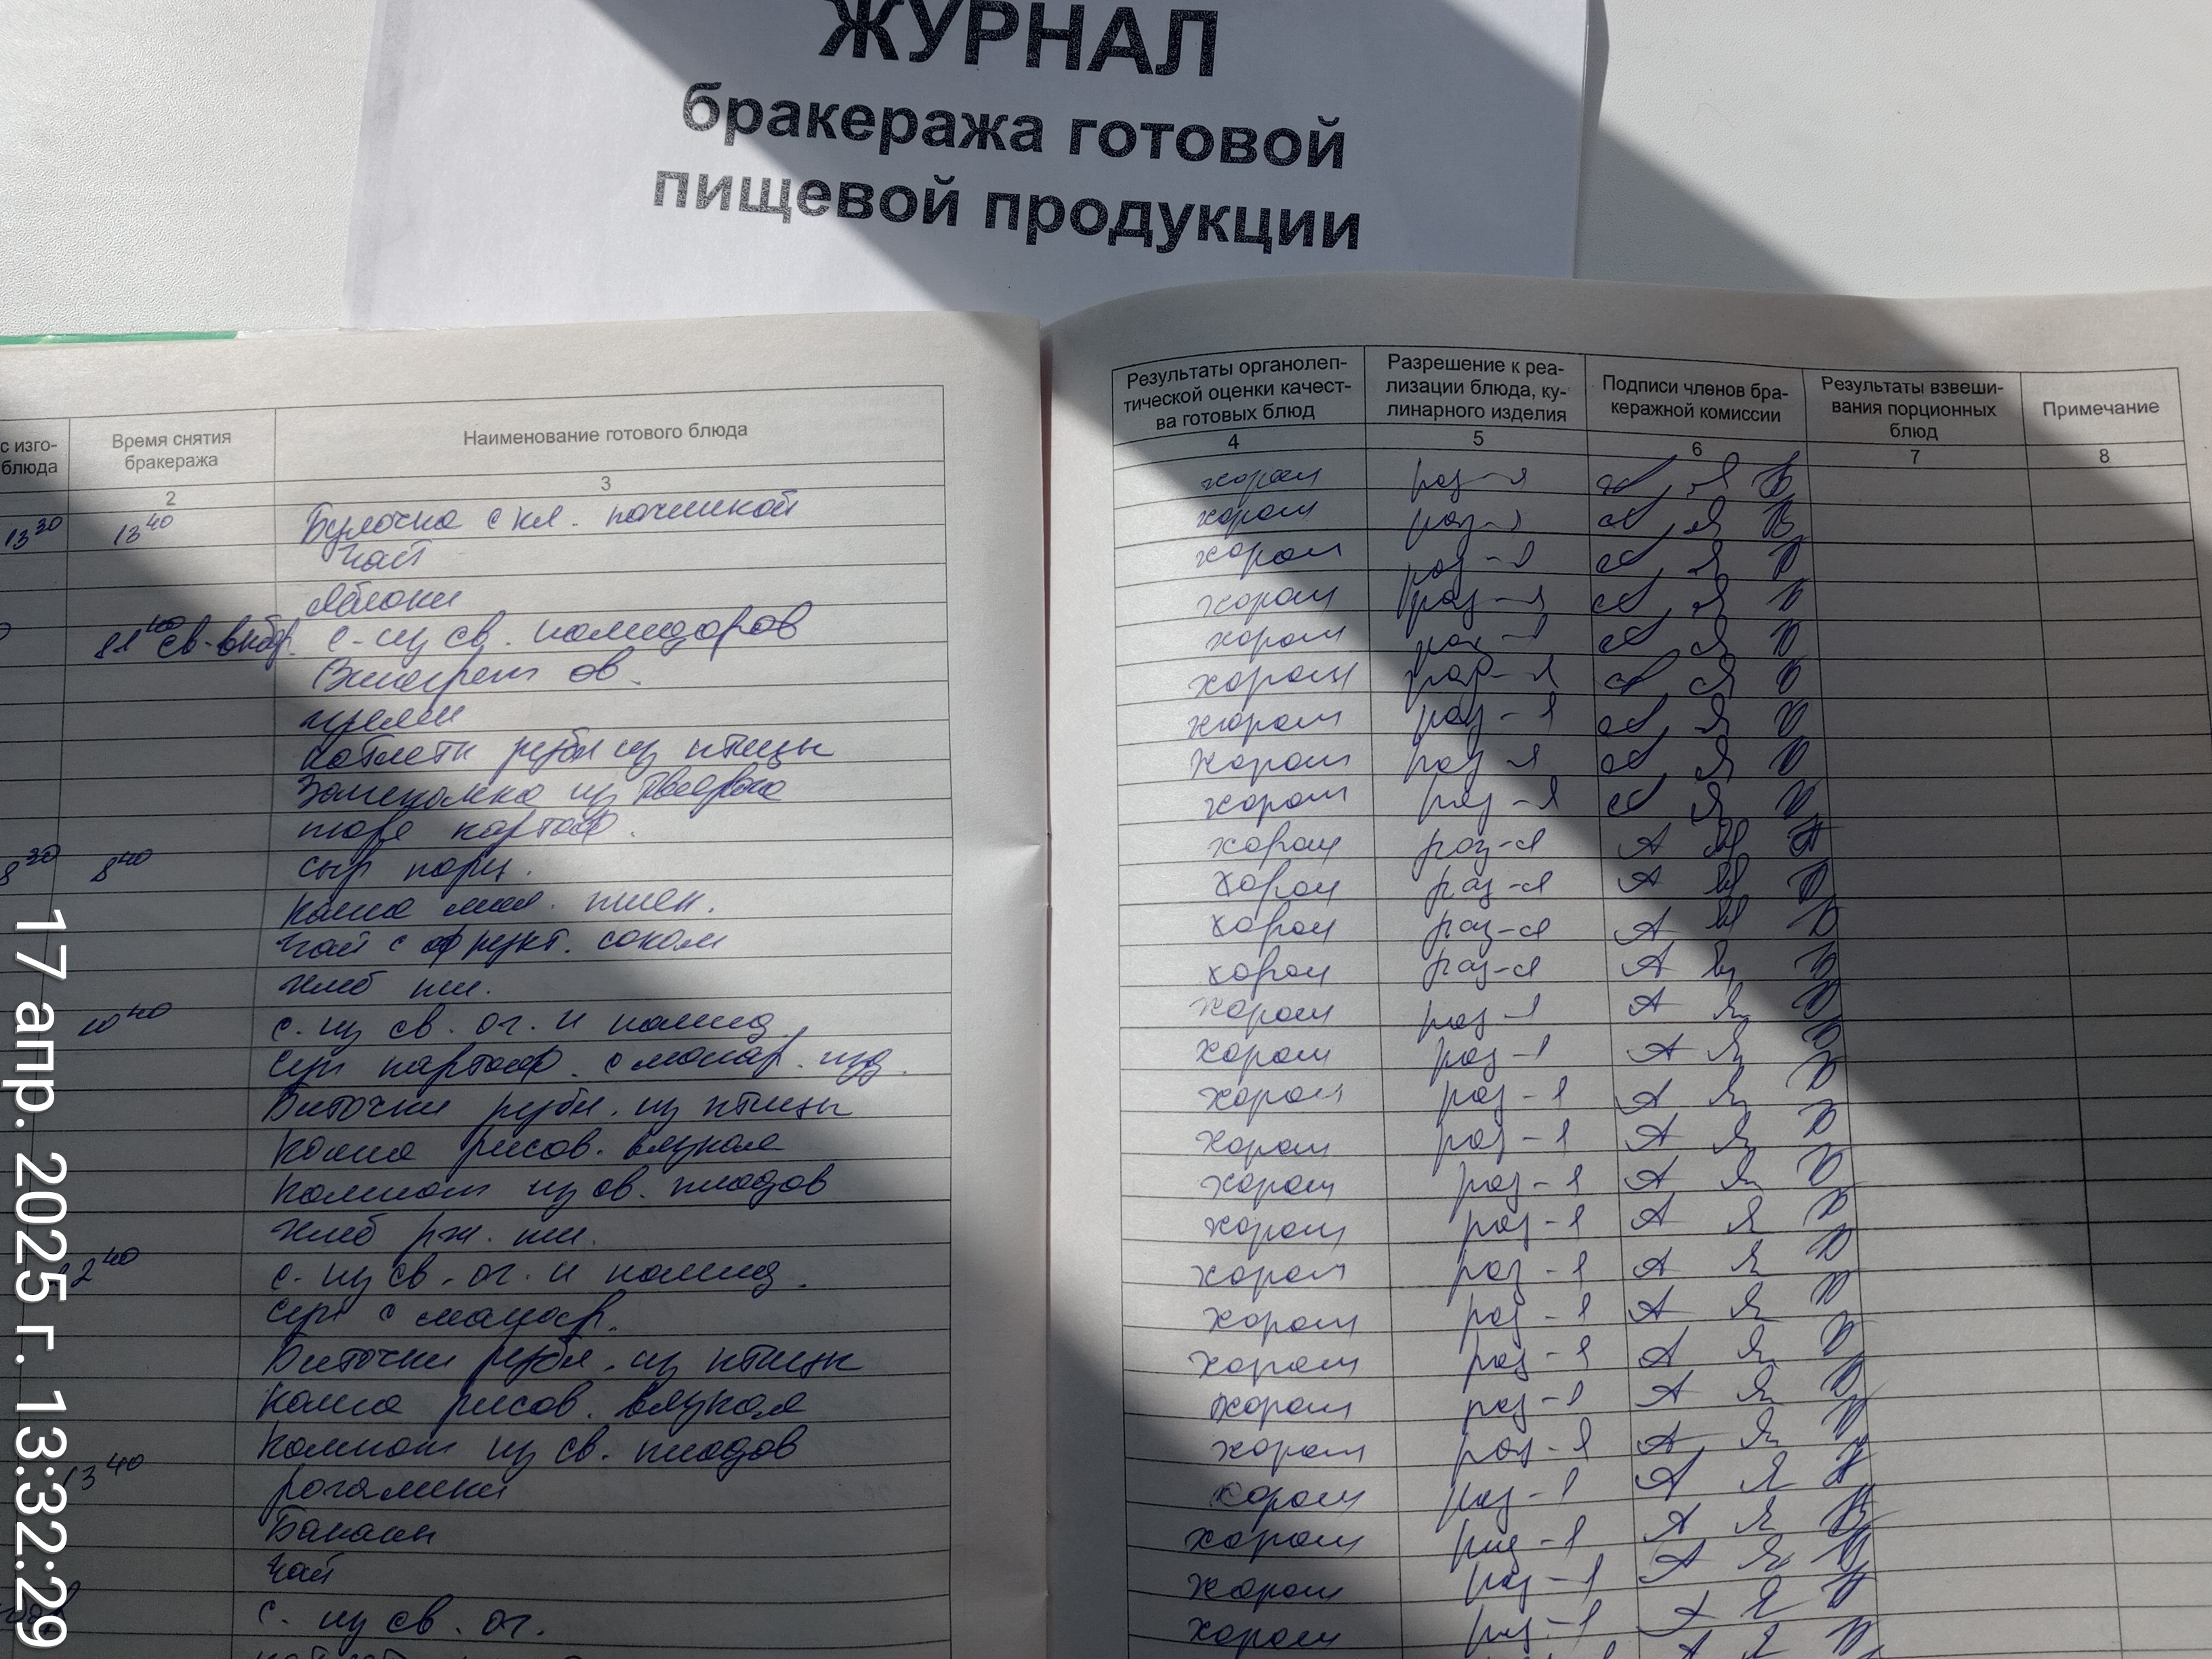 ЖУРНАЛ
бракеража готовой
пищевой продукции
с изго-
блюда
Время снятия
бракеража
Наименование готового блюда
2
3
13 30 13 40 Булочка с кл. начинкой
Чай
Яблоки
11 40 св-выбр. с-из св. помидоров
Винегрет ов.
гуляш
котлеты рубл из птицы
Запеканка из творога
пюре картоф.
8 30 8 40 сыр порц.
Каша мол. пшен.
Чай с фрукт. соком
хлеб пш.
10 40 с. из св. ог. и помид.
Суп картоф. с макар. изд.
Биточки рубл. из птицы
Каша рисов. вязкая
Компот из св. плодов
хлеб рж. пш.
12 40 с. из св. ог. и помид.
Суп с макар.
Биточки рубл. из птицы
Каша рисов. вязкая
Компот из св. плодов
13 40 рогалики
Бананы
Чай
с. из св. ог.
Результаты органолеп-
тической оценки качест-
ва готовых блюд
Разрешение к реа-
лизации блюда, ку-
линарного изделия
Подписи членов бра-
керажной комиссии
Результаты взвеши-
вания порционных
блюд
Примечание
4 5 6 7 8
хорош раз-я
хорош раз-я
хорош раз-я
хорош раз-я
хорош раз-я
хорош раз-я
хорош раз-я
хорош раз-я
хорош раз-я
хорош раз-я
хорош раз-я
хорош раз-я
хорош раз-я
хорош раз-я
хорош раз-я
хорош раз-я
хорош раз-я
хорош раз-я
хорош раз-я
хорош раз-я
хорош раз-я
хорош раз-я
хорош раз-я
хорош раз-я
хорош раз-я
хорош раз-я
хорош раз-я
хорош раз-я
17 апр. 2025 г. 13:32:29